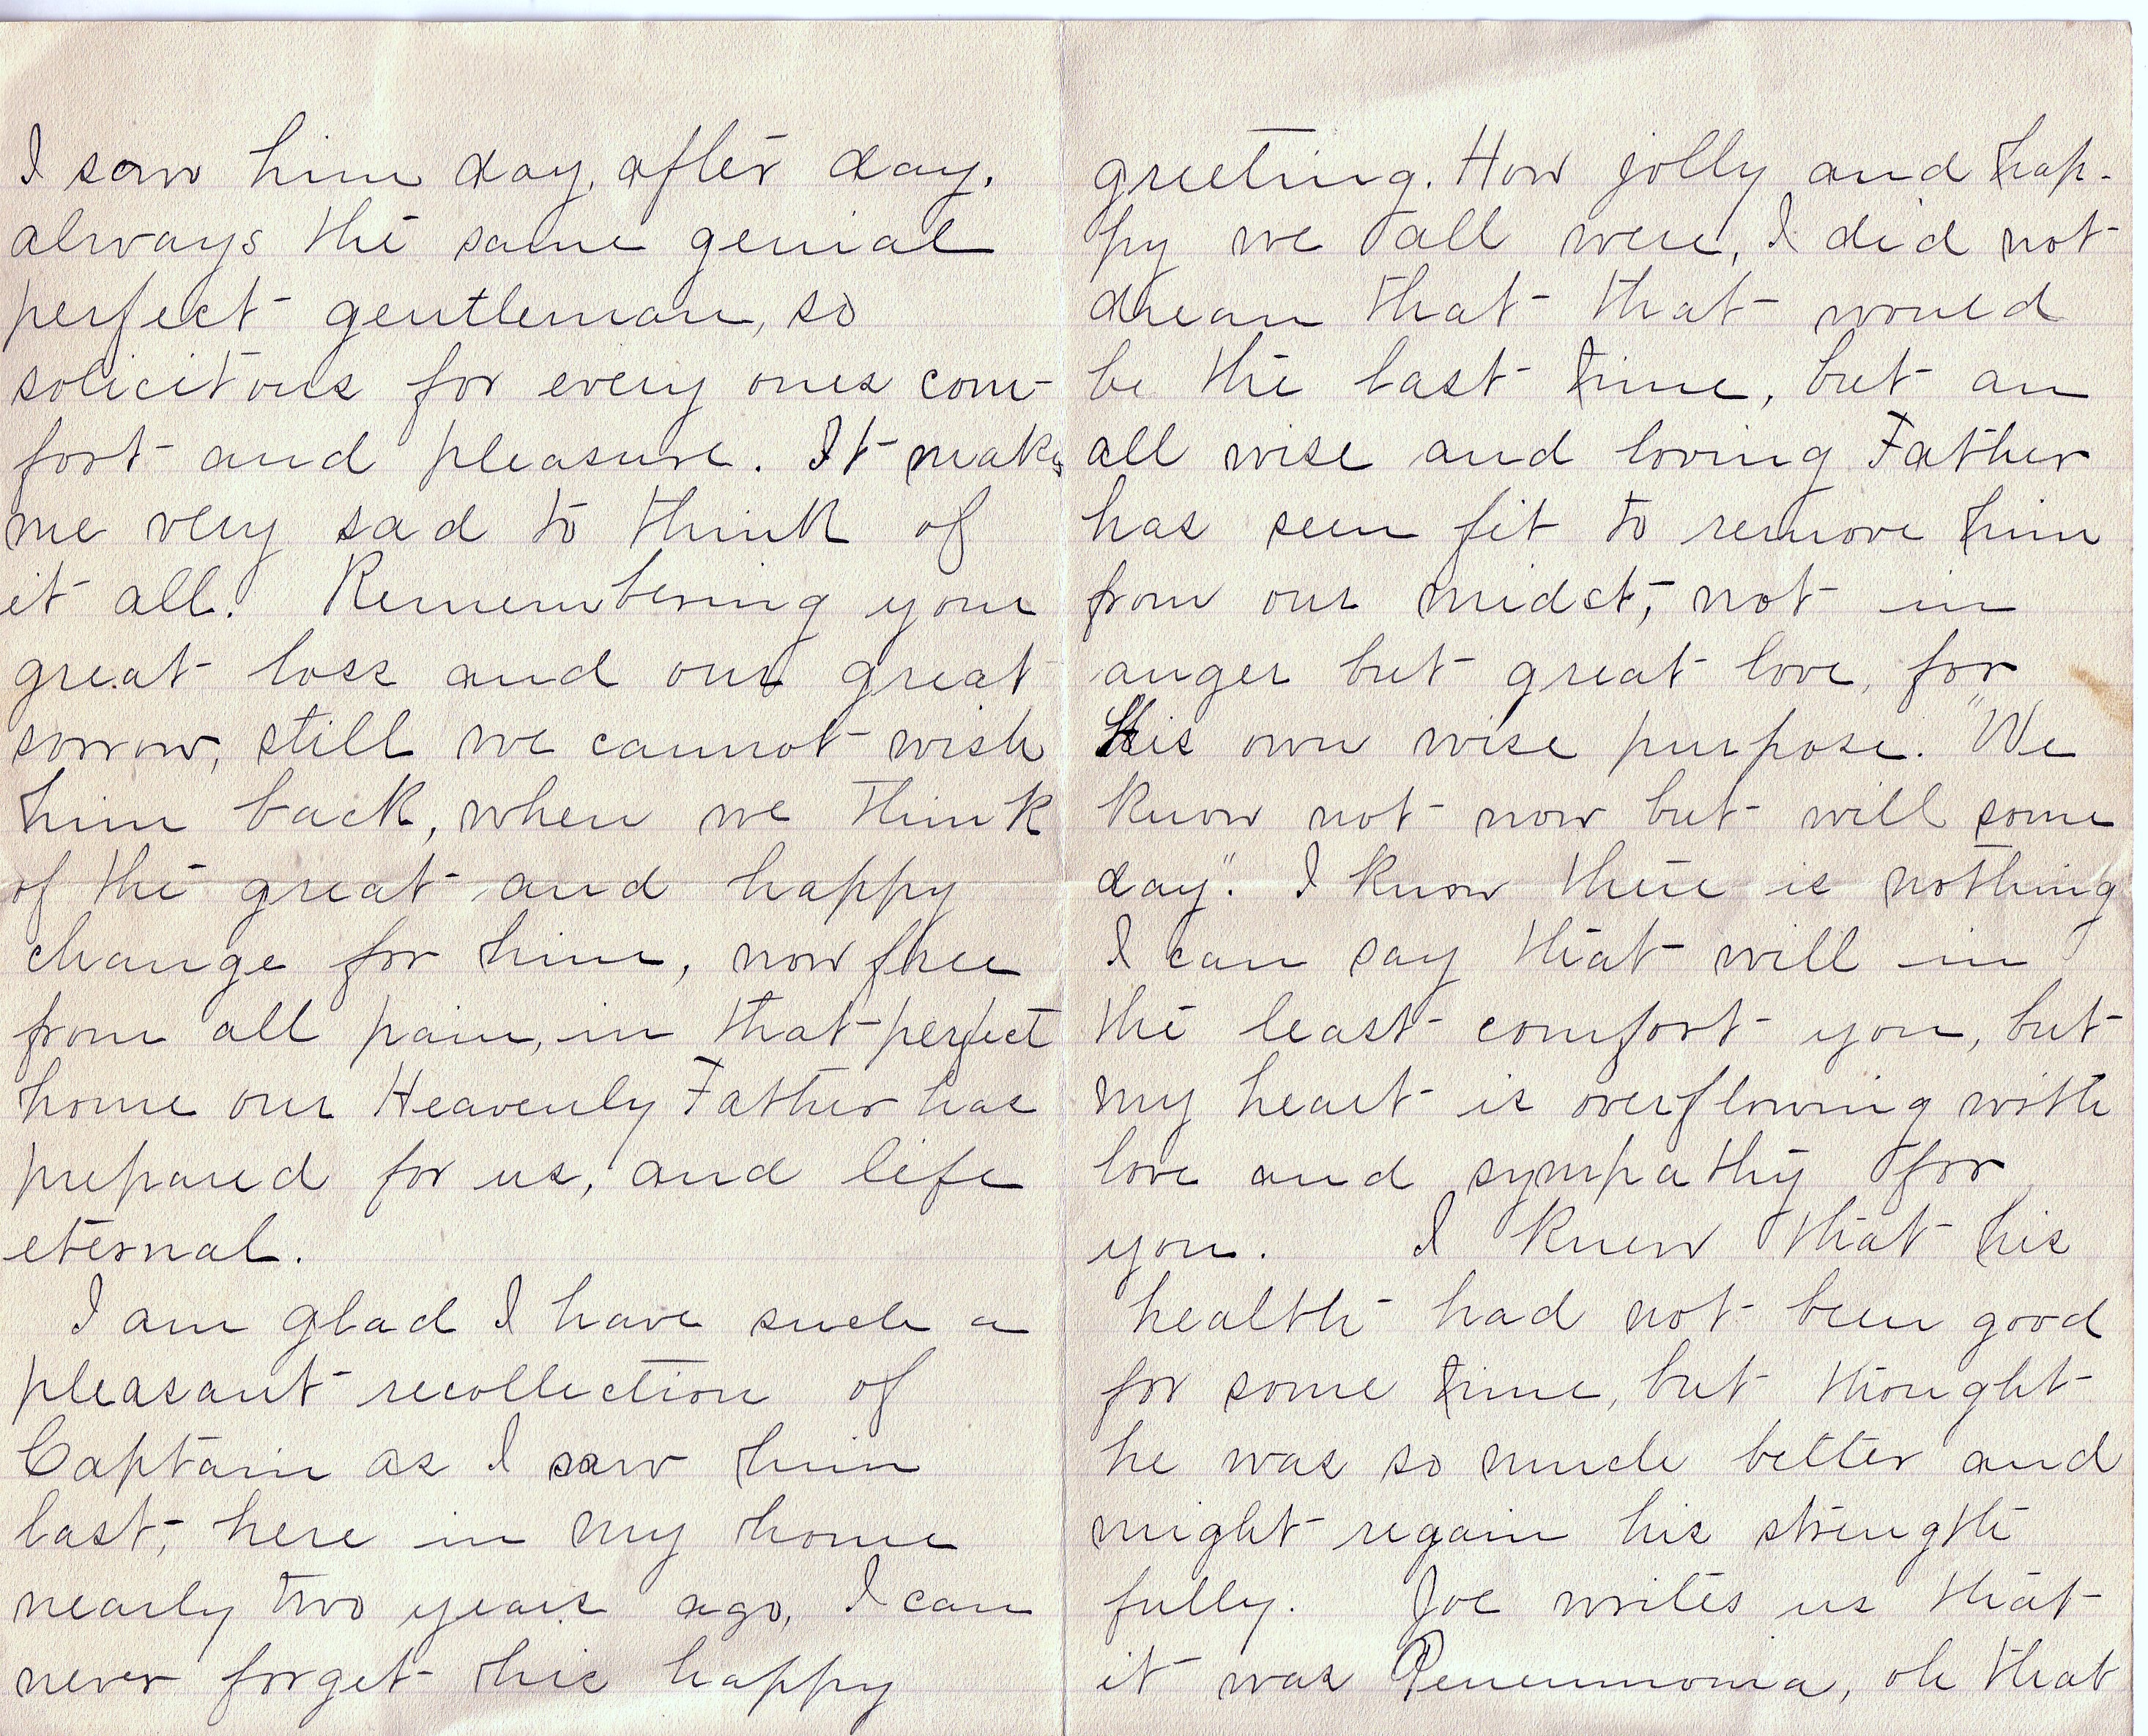 I saw him day, after day,
always the same genial
perfect gentleman, so
solicitous for every ones com-
fort and pleasure. It makes
me very sad to think of
it all. Remembering your
great loss and our great
sorrow, still we cannot wish
him back, when we think
of the great and happy
change for him, now free
from all pain, in that perfect
home our Heavenly Father has
prepared for us, and life
eternal.
I am glad I have such a
pleasant recollection of
Captain as I saw him
last, here in my home
nearly two years ago, I can
never forget his happy
greeting. How jolly and hap-
py we all were, I did not
dream that that would
be the last time, but an
all wise and loving Father
has seen fit to remove him
from our midst, not in
anger but great love, for
His own wise purpose. "We
know not now but will some
day." I know there is nothing
I can say that will in
the least comfort you, but
my heart is overflowing with
love and sympathy for
you. I knew that his
health had not been good
for some time, but thought
he was so much better and
might regain his strength
fully. Joe writes us that
it was Peneumonia, oh that